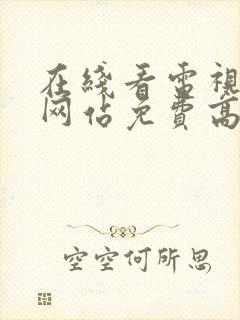 在綫看雷視
网佔免費高
空空何所思